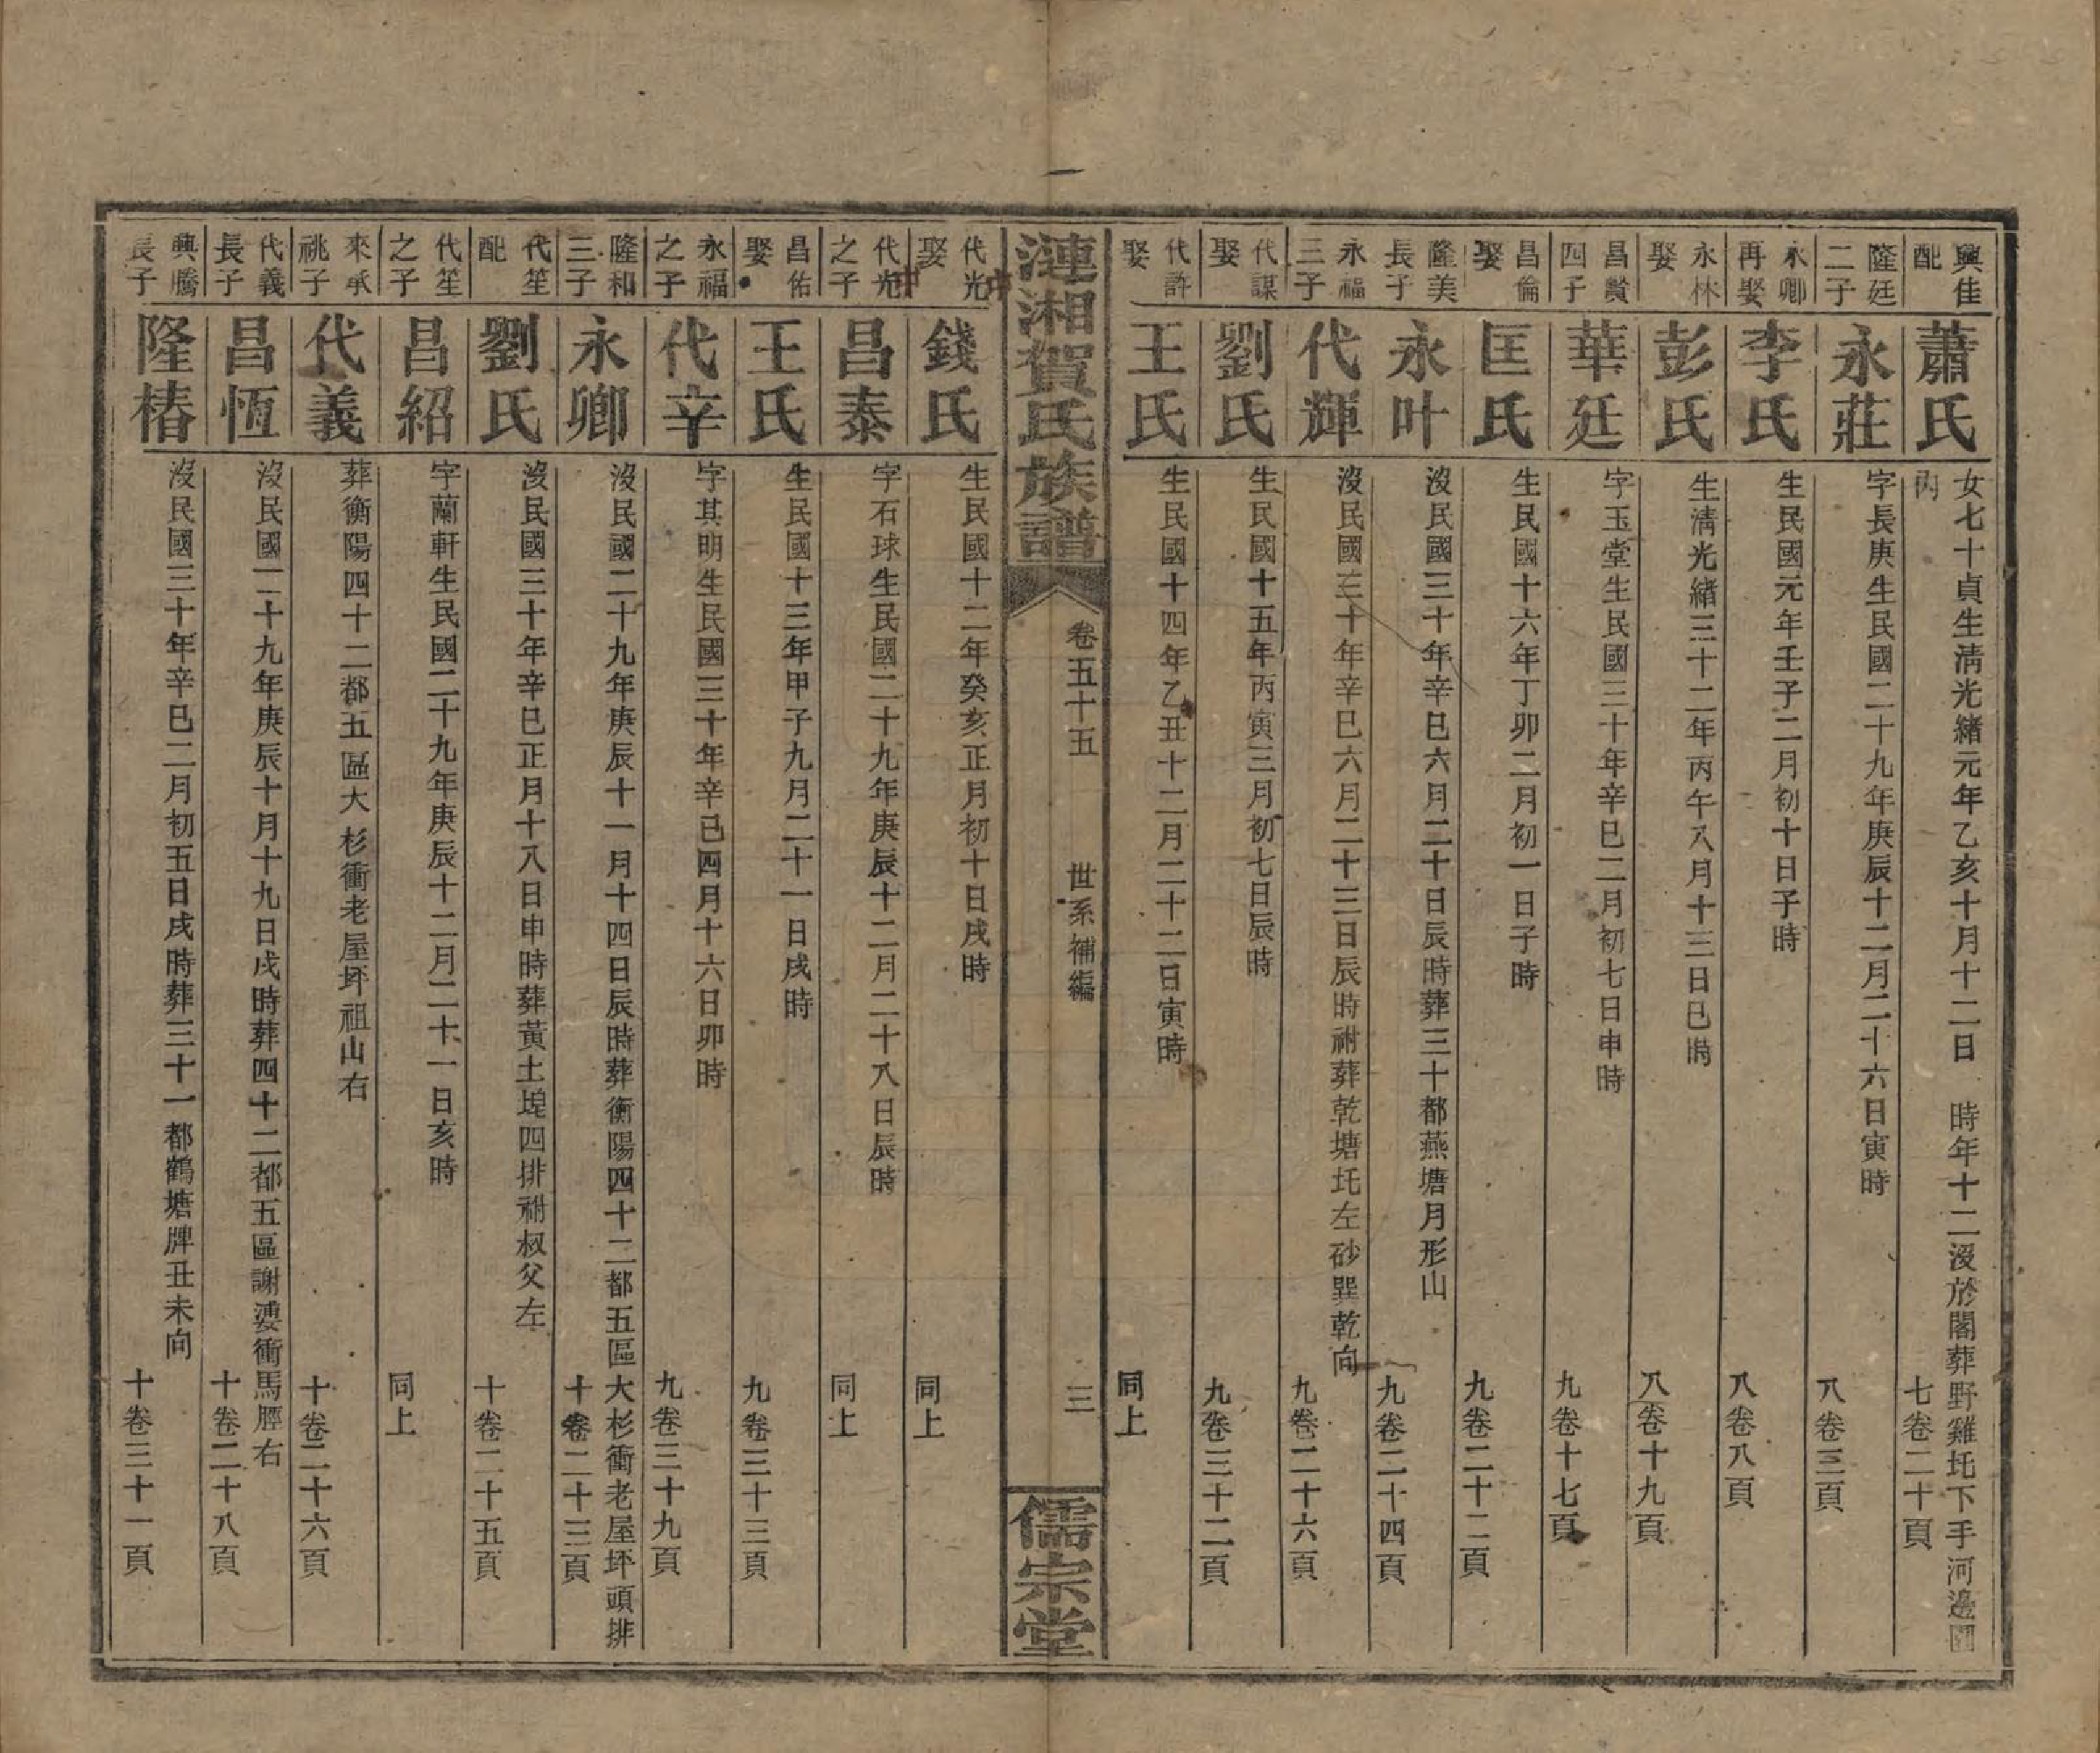 興佳配
蕭氏
女七十貞生淸光緒元年乙亥十月十二日　時年十二沒於閣葬野雞坉下手河邊園內
七卷二十頁
隆廷二子
永莊
字長庚生民國二十九年庚辰十二月二十六日寅時
八卷三頁
永卿再娶
李氏
生民國元年壬子二月初十日子時
八卷八頁
永林娶
彭氏
生淸光緒三十二年丙午八月十三日巳時
八卷十九頁
昌贊四子
華廷
字玉堂生民國三十年辛巳二月初七日申時
九卷十七頁
昌倫娶
匡氏
生民國十六年丁卯二月初一日子時
九卷二十二頁
隆美長子
永叶
沒民國三十年辛巳六月二十日辰時葬三十都燕塘月形山
九卷二十四頁
永福三子
代輝
沒民國三十年辛巳六月二十三日辰時祔葬乾塘坉左砂巽乾向
九卷二十六頁
代謀娶
劉氏
生民國十五年丙寅三月初七日辰時
九卷三十二頁
代許娶
王氏
生民國十四年乙丑十二月二十二日寅時
同上
漣湘賀氏族譜
卷五十五　世系補編
三
儒宗堂
代光娶
錢氏
生民國十二年癸亥正月初十日戌時
同上
代光之子
昌泰
字石球生民國二十九年庚辰十二月二十八日辰時
同上
昌佑娶
王氏
生民國十三年甲子九月二十一日戌時
九卷三十三頁
永福之子
代辛
字其明生民國三十年辛巳四月十六日卯時
九卷三十九頁
隆和三子
永卿
沒民國二十九年庚辰十一月十四日辰時葬衡陽四十二都五區大杉衝老屋坪頭排
十卷二十三頁
代笙配
劉氏
沒民國三十年辛巳正月十八日申時葬黃土坭四排祔叔父左
十卷二十五頁
代笙之子
昌紹
字蘭軒生民國二十九年庚辰十二月二十一日亥時
同上
來承祧子
代義
葬衡陽四十二都五區大杉衝老屋坪祖山右
十卷二十六頁
代義長子
昌恆
沒民國二十九年庚辰十月十九日戌時葬四十二都五區謝婆衝馬脛右
十卷二十八頁
興騰長子
隆椿
沒民國三十年辛巳二月初五日戌時葬三十一都鶴塘牌丑未向
十卷三十一頁